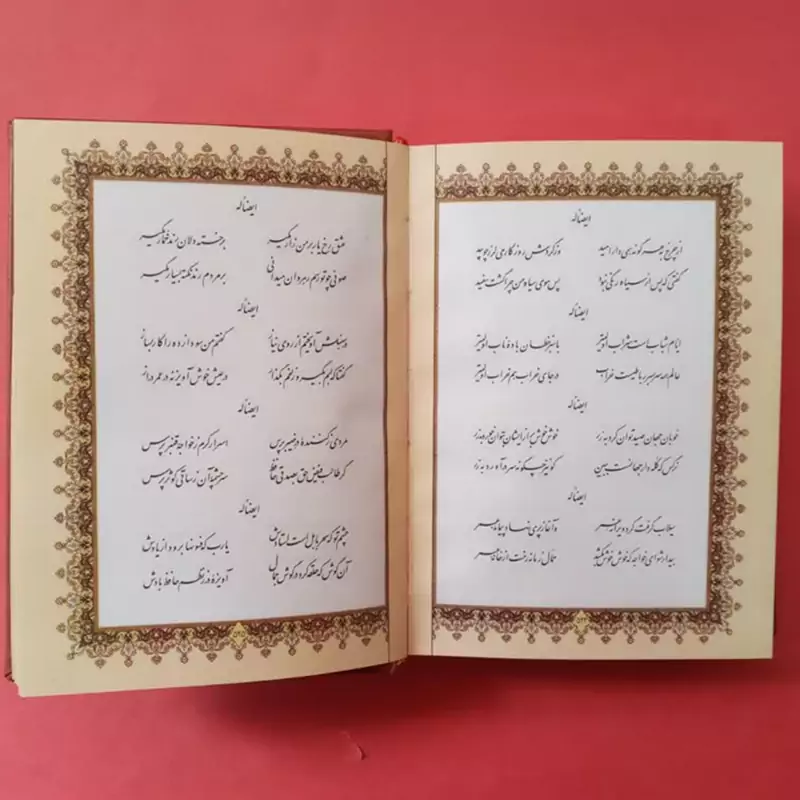 ایضاً له
از چرخ بهر گونه همی دار امید وز گردش روزگار می لرز چو بید
گفتی که پس از سیاه رنگی نبود پس موی سیاه من چرا گشت سفید
ایضاً له
ایام شباب است شراب اولیتر با سبز خطان باده ناب اولیتر
عالم همه سر بسر رباطیست خراب در جای خراب هم خراب اولیتر
ایضاً له
خوبان جهان صید توان کرد بزر خوش خوش بر از ایشان بتوان خورد بزر
نرگس که کله دار جهانست ببین کو نیز چگونه سر در آورد بزر
ایضاً له
سیلاب گرفت گرد ویرانه عمر و آغاز پری نهاد پیمانه عمر
بیدار شو ای خواجه که خوش خوش بکشد حمال زمانه رخت از خانه عمر
ایضاً له
عشق رخ یار بر من زار مگیر بر خسته دلان رند خمار مگیر
صوفی چو تو رسم رهروان میدانی بر مردم رند نکته بسیار مگیر
ایضاً له
در سنبلش آویختم از روی نیاز گفتم من سودازده را کار بساز
گفتا که لبم بگیر و زلفم بگذار در عیش خوش آویز نه در عمر دراز
ایضاً له
مردی ز کننده در خیبر پرس اسرار کرم ز خواجه قنبر پرس
گر طالب فیض حق بصدقی حافظ سرچشمه آن ز ساقی کوثر پرس
ایضاً له
چشم تو که سحر بابل است استادش یا رب که فسونها برود از یادش
آن گوش که حلقه کرد در گوش جمال آویزه در ز نظم حافظ بادش